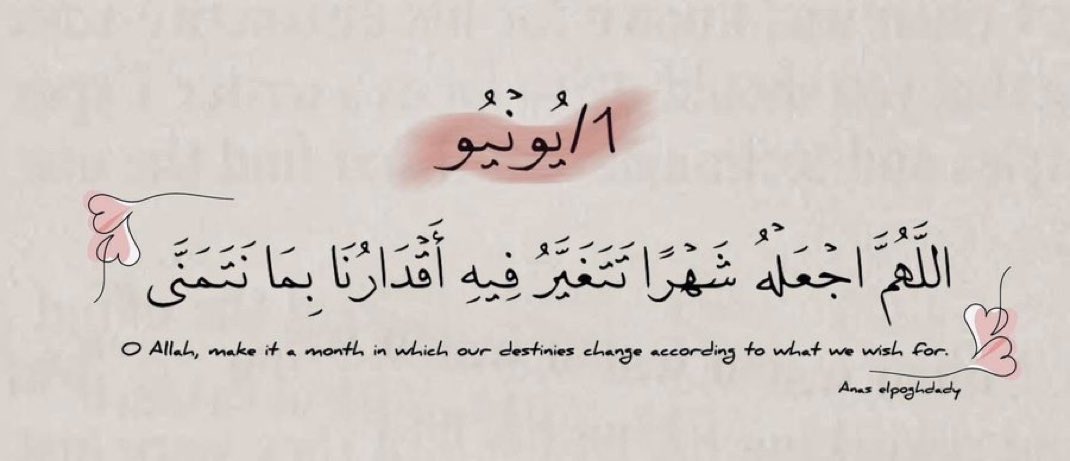 1/يُونْيُو
اللَّهُمَّ اجْعَلْهُ شَهْرًا تَتَغَيَّرُ فِيهِ أَقْدَارُنَا بِمَا نَتَمَنَّى
O Allah, make it a month in which our destinies change according to what we wish for.
Anas elpoghdady